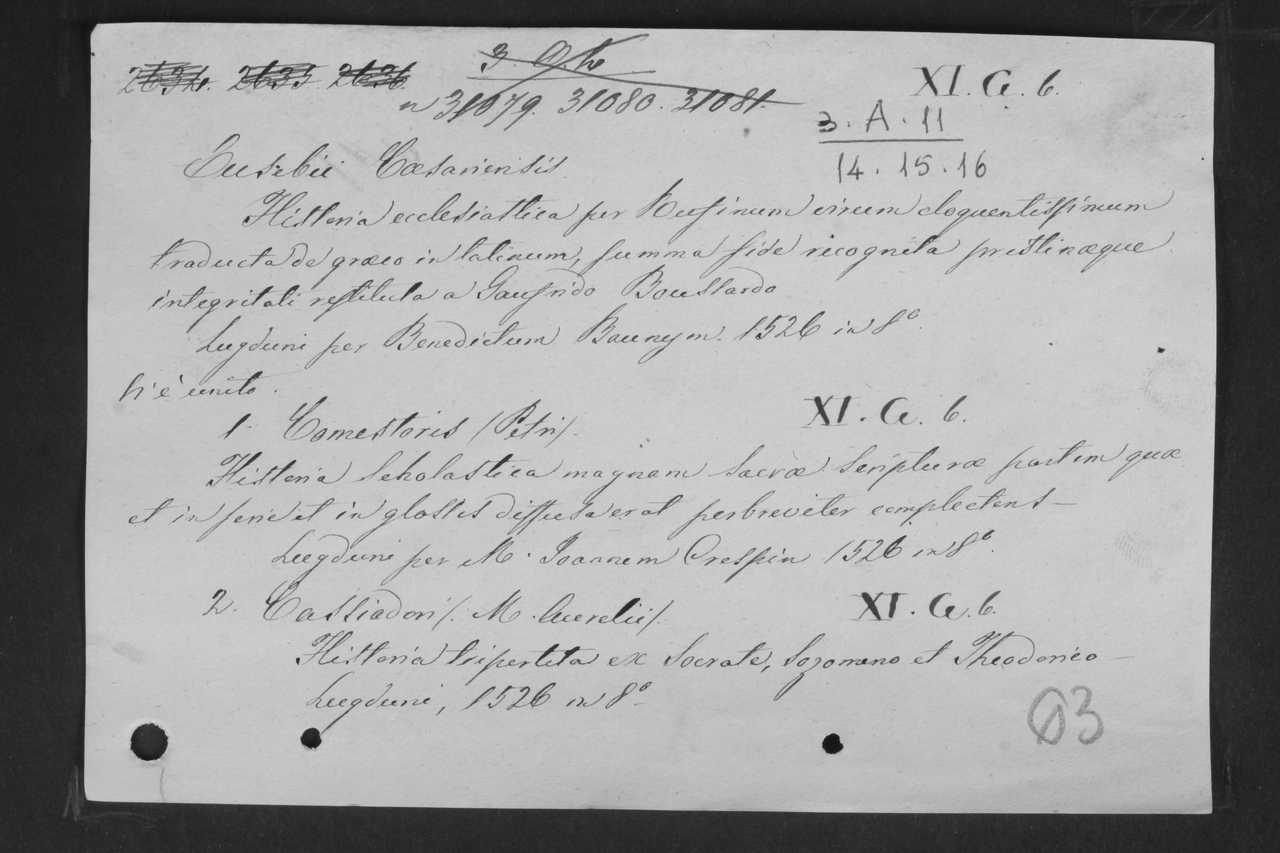 2634. 2635 2636
XI. G. 6.
n 31079. 31080. 31081.
3. A. 11
14. 15. 16
Eusebii Cæsariensis
Historia ecclesiastica per Rufinum virum eloquentissimum
traducta de græco in latinum, summa fide recognita pristinæque
integritati restituta a Gaufrido Boussardo
Lugduni per Benedictum Bounyn. 1526 in 8°.
Vi è unito.
1. Comestoris (Petri).
XI. G. 6.
Historia scholastica magnam sacræ scripturæ partem quæ
et in serie et in glossis diffusa erat perbreviter complectens—
Lugduni per M. Joannem Crespin 1526 in 8°.
2. Cassiodori (. M. Aurelii).
XI. G. 6.
Historia tripertita ex Socrate, Sozomeno et Theodorico—
Lugduni, 1526 in 8°—
93